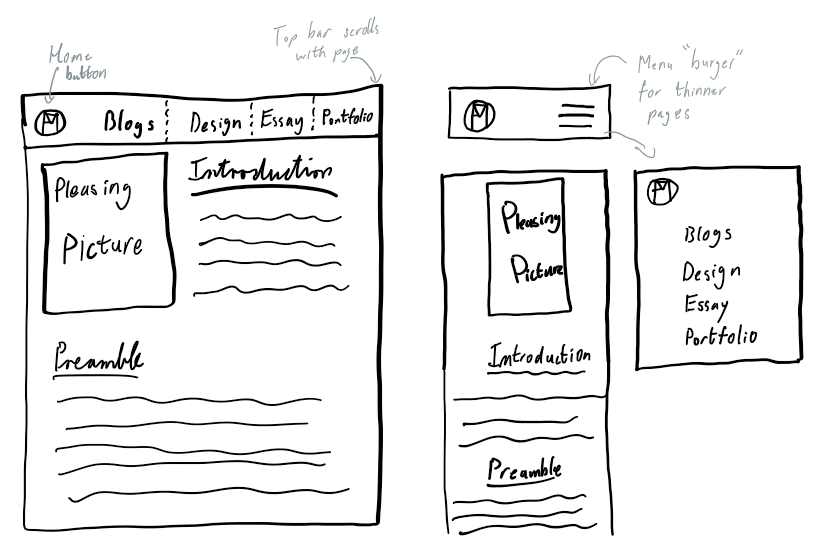 Home
button
Top bar scrolls
with page
M
Blogs
Design
Essay
Portfolio
Pleasing
Picture
Introduction
Preamble
Menu "burger"
for thinner
pages
M
Pleasing
Picture
Introduction
Preamble
M
Blogs
Design
Essay
Portfolio